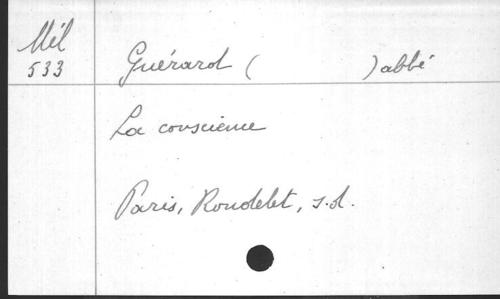 Mél
533
Guérard ( ) abbé
La conscience
Paris, Rondelet, s.d.